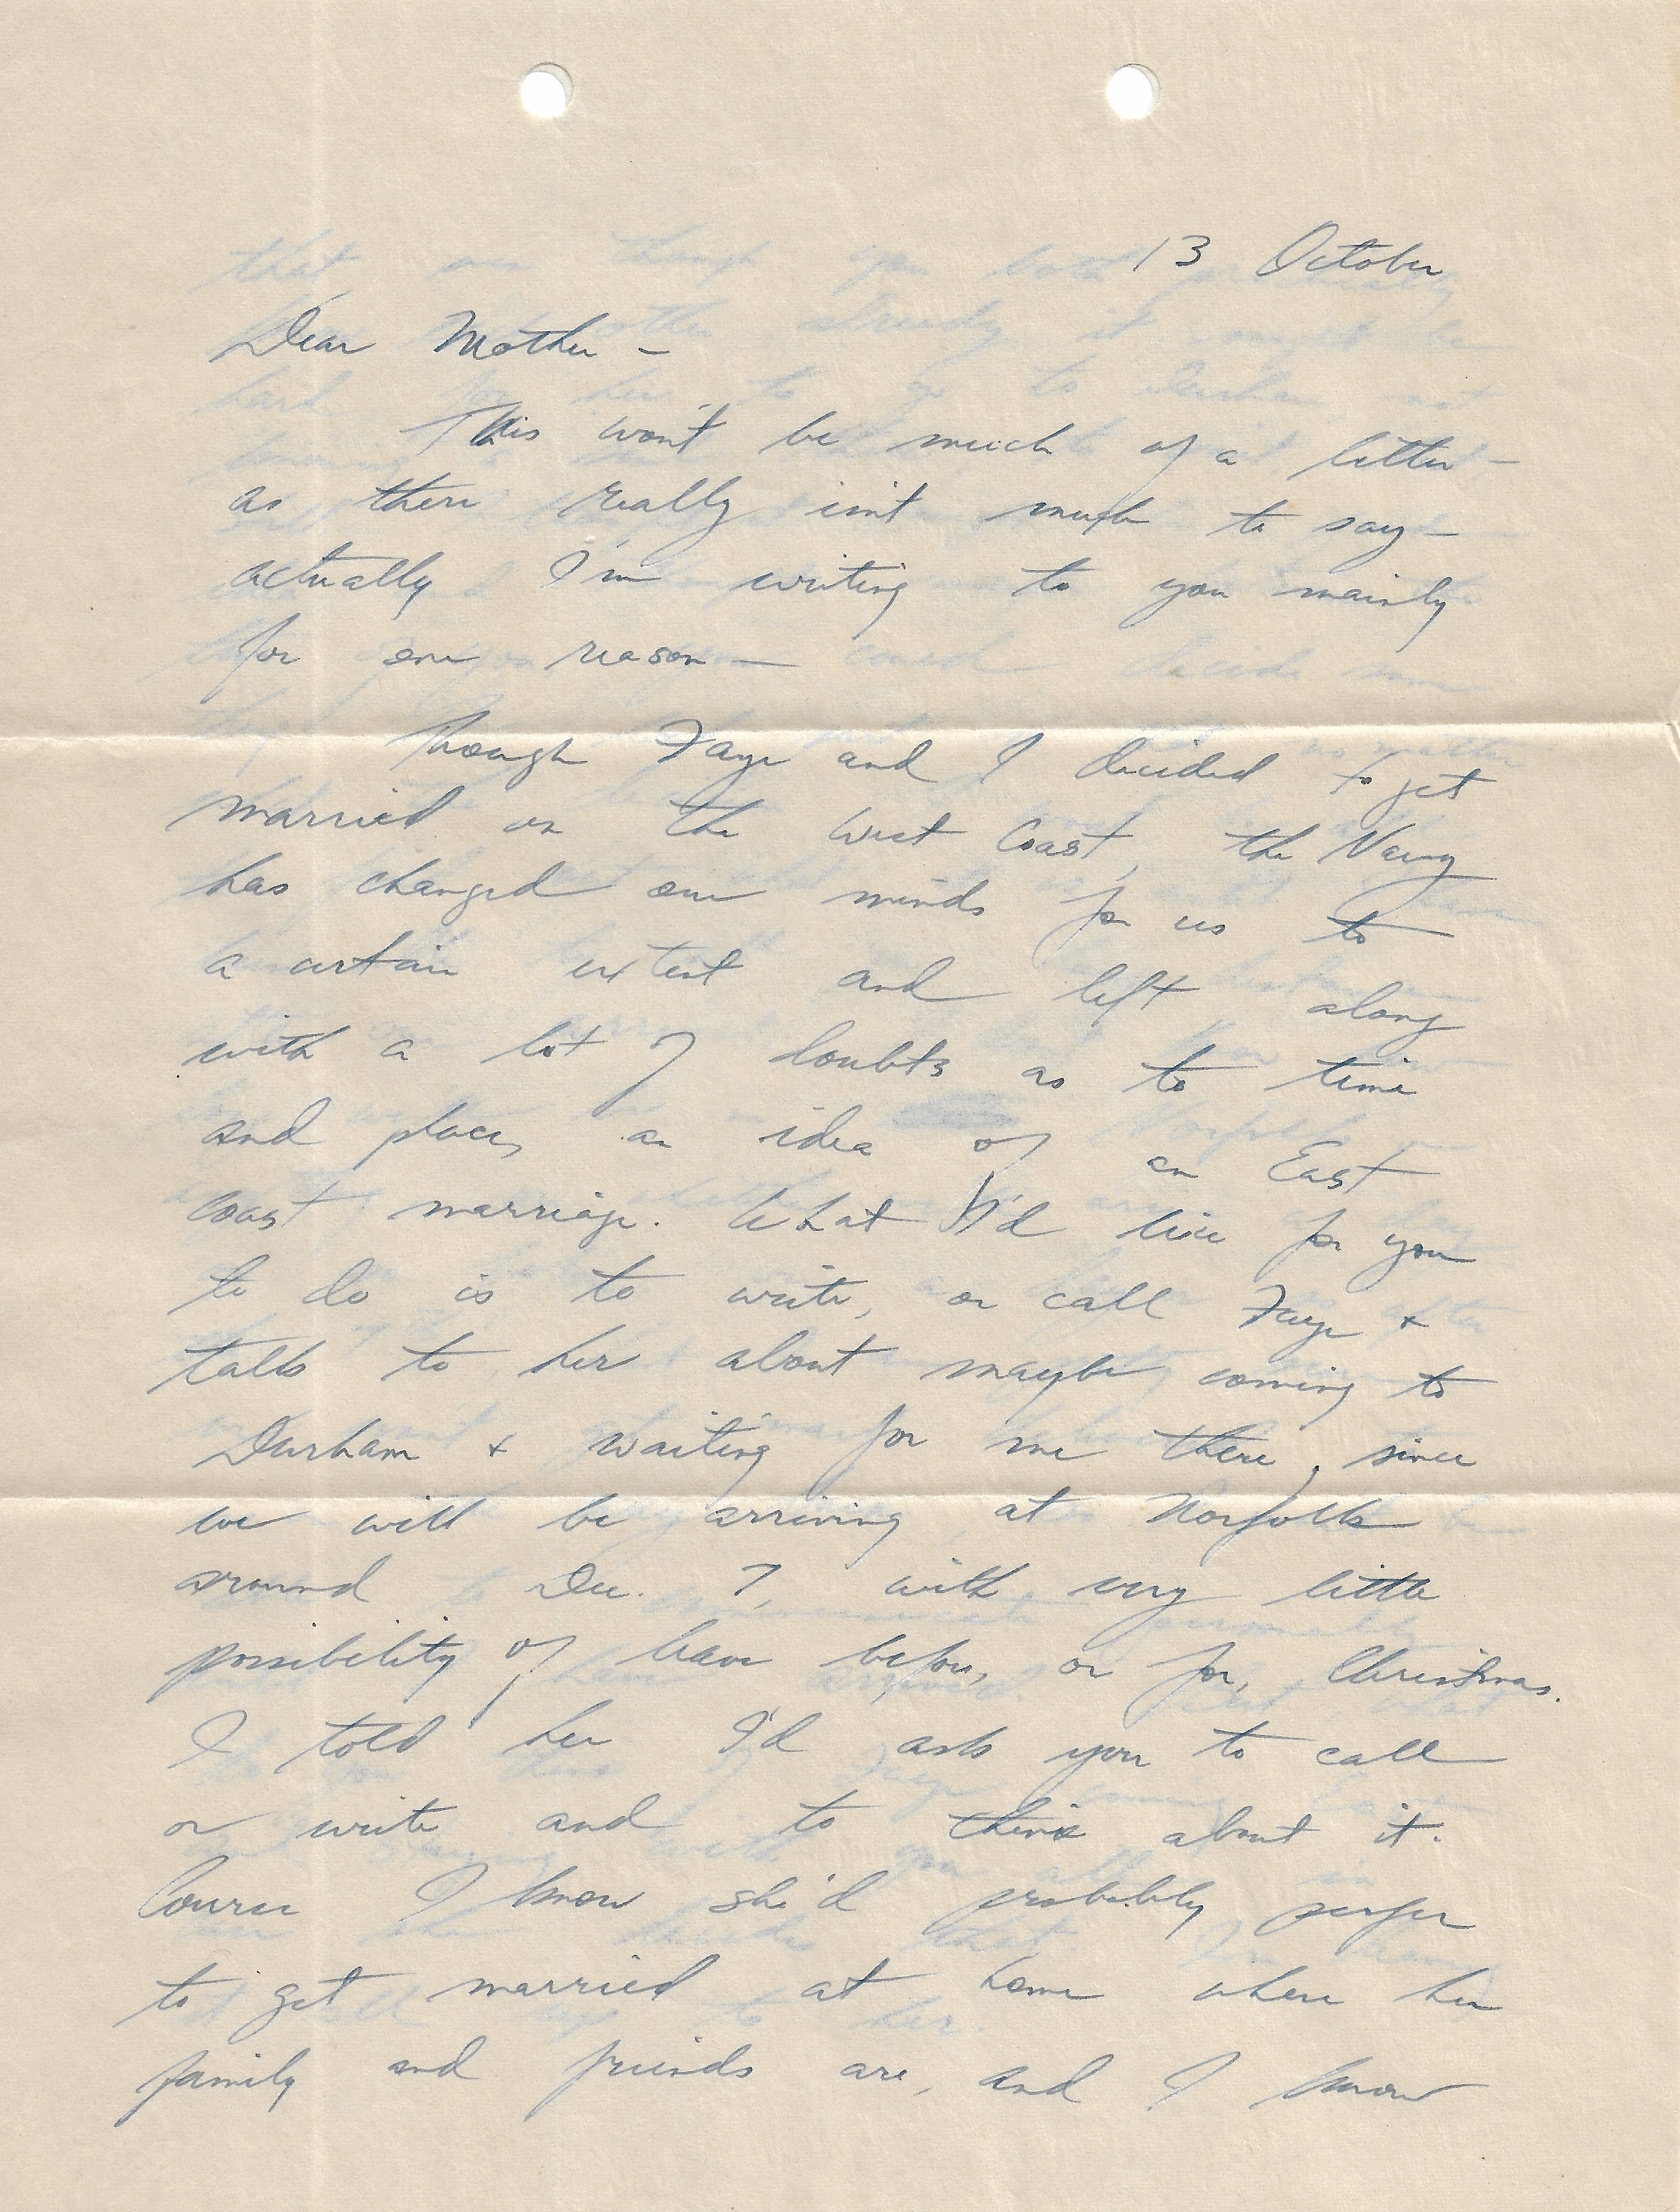 13 October
Dear Mother -
This won't be much of a letter -
as there really isn't much to say -
actually I'm writing to you mainly
for one reason -
Though Faye and I decided to get
married on the West Coast, the Navy
has changed our minds for us to
a certain extent and left, along
with a lot of doubts as to time
and place, an idea of an East
Coast marriage. What I'd like for you
to do is to write, or call Faye +
talk to her about maybe coming to
Durham + waiting for me there, since
we will be arriving at Norfolk
around Dec. 7, with very little
possibility of leave before, or for, Christmas.
I told her I'd ask you to call
or write and to think about it.
Course I know she'd probably perfer
to get married at home where her
family and friends are, and I know